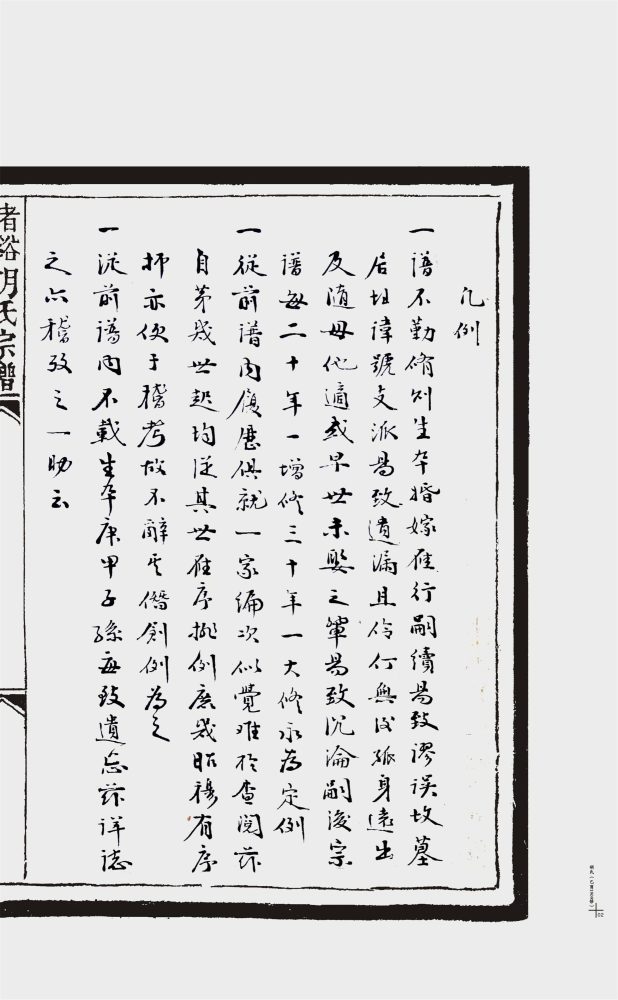 凡例
一譜不勤脩則生卒婚嫁雁行嗣續易致謬误坟墓
居址諱號支派易致遺漏且伶仃無後孤身遠出
及随母他適或早世未娶之輩易致沉淪嗣後宗
譜每二十年一增修三十年一大修永為定例
一從前譜内履歷俱就一家編次似覺难於查閲茲
自第幾世起均從其世雁序挑例庶幾昭穆有序
抑亦便于稽考故不辭其僭創例為之
一從前譜内不載生卒庚甲子孫每致遺忘茲详誌
之亦稽考之一助云
胡氏宗譜
02